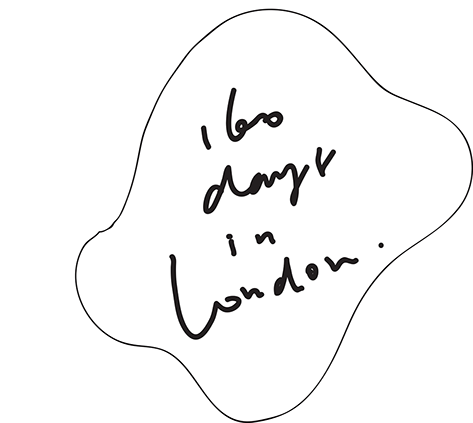 160
days
in
London.